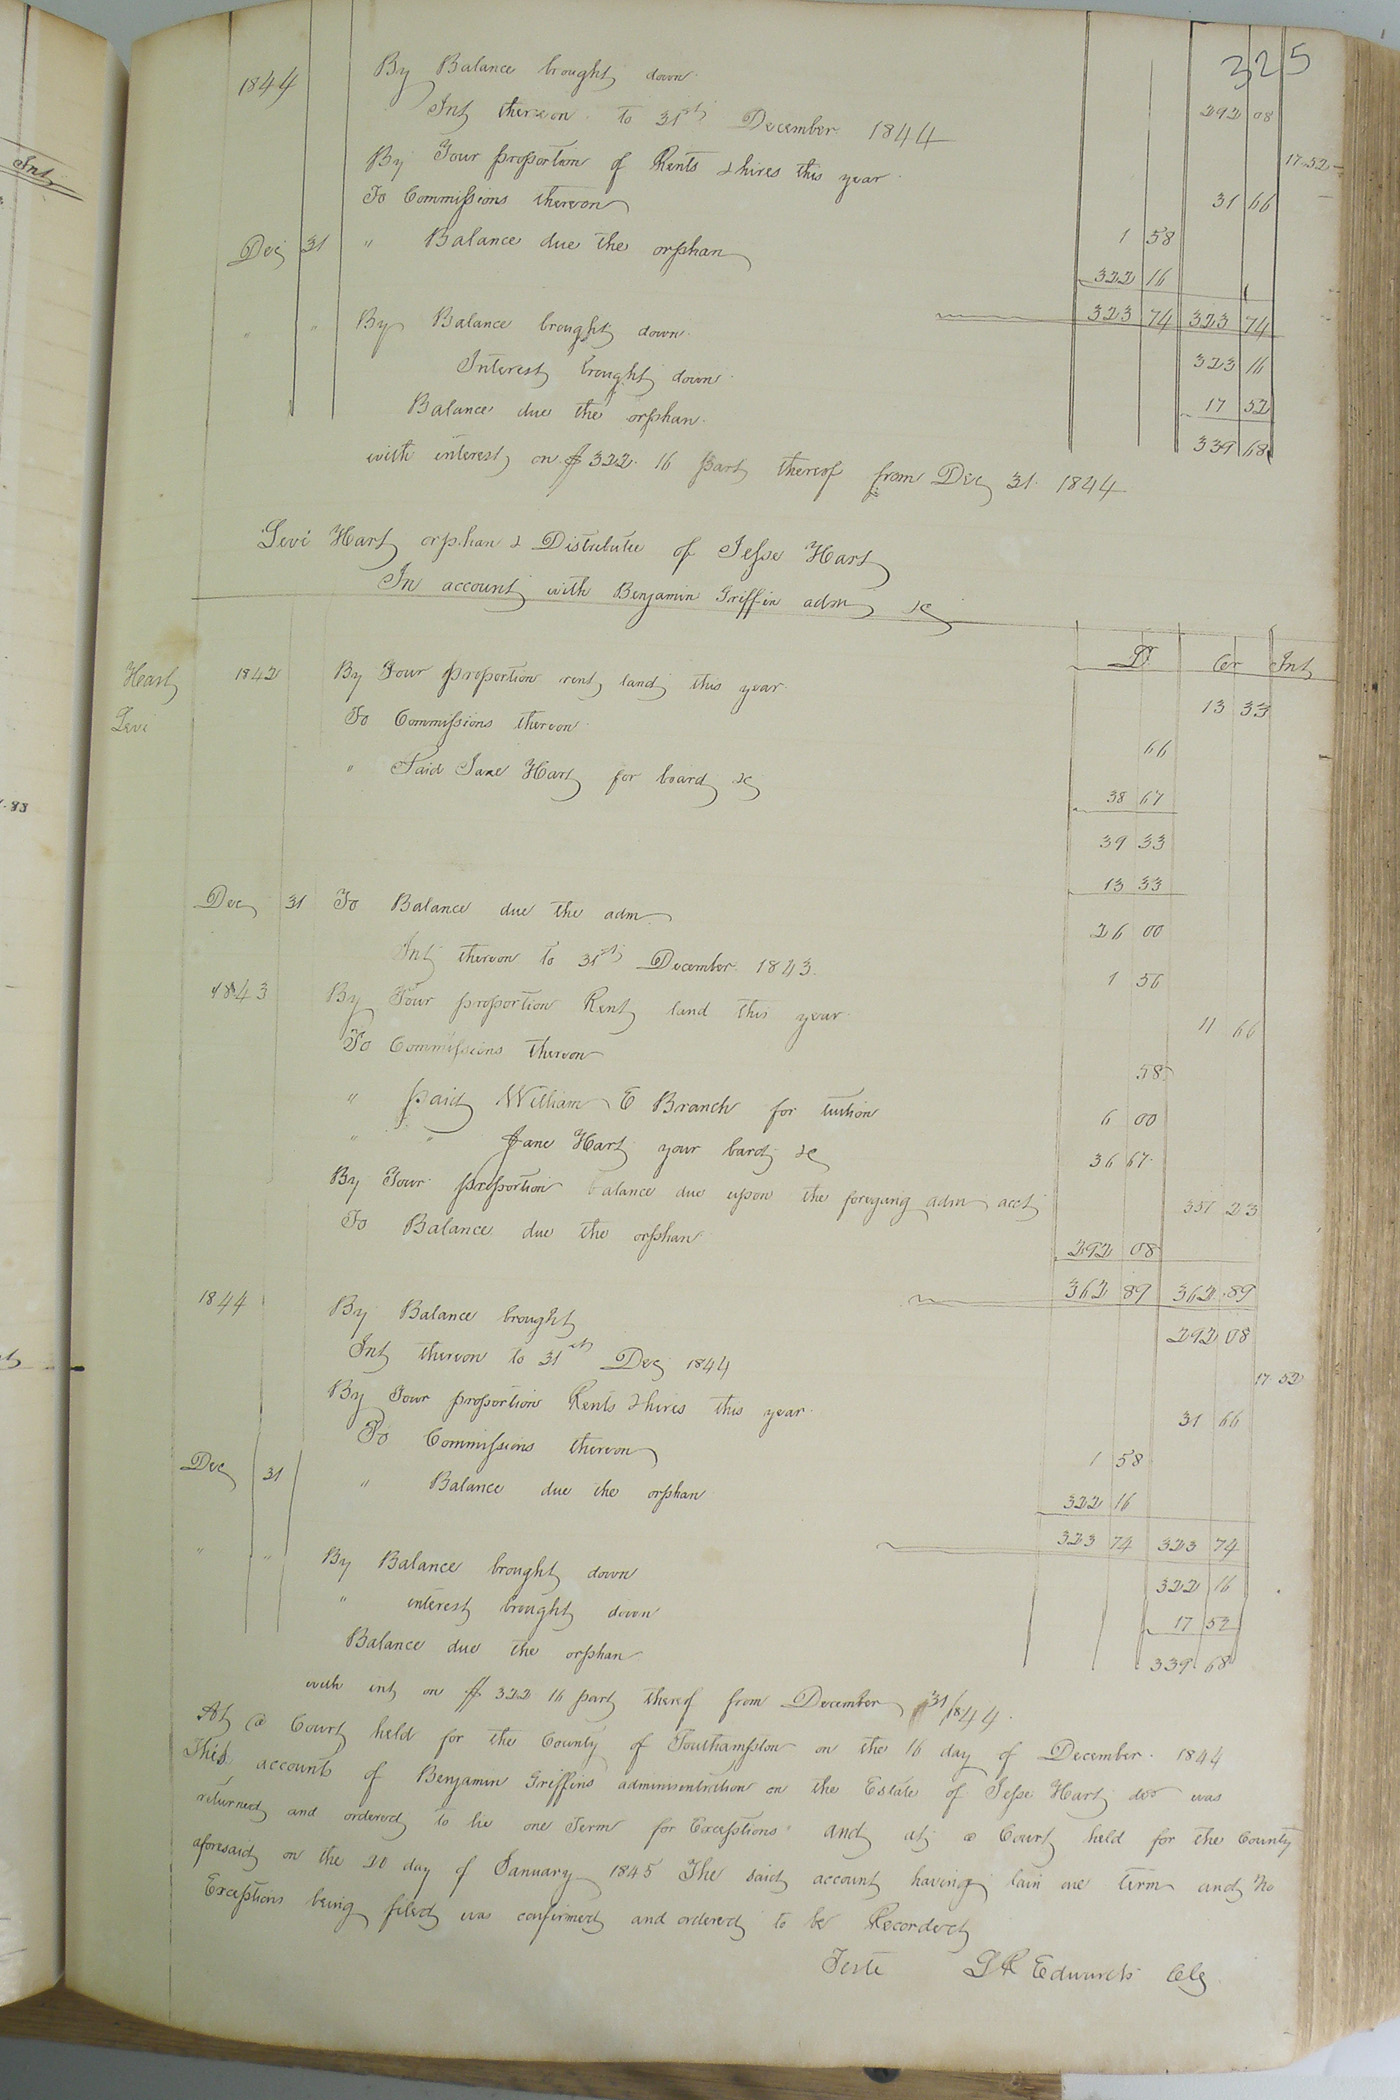 325
1844 By Balance brought down 292 08
Int thereon to 31st December 1844 17.52
By Your proportion of Rents & hires this year 31 66
To Commissions thereon 1 58
Dec 31 " Balance due the orphan 322 16
323 74 323 74
" " By Balance brought down 323 16
Interest brought down 17 52
Balance due the orphan 339 68
with interest on $322.16 part thereof from Dec 31 1844
Levi Hart orphan & Distributee of Jesse Hart
In account with Benjamin Griffin adm &c
Dr Cr Int
Hart
Levi
1842 By Your proportion rent land this year 13 33
To Commissions thereon 66
" Paid Jane Hart for board &c 38 67
39 33
13 33
Dec 31 To Balance due the adm 26 00
Int thereon to 31st December 1843 1 56
1843 By Your proportion Rent land this year 11 66
To Commissions thereon 58
" paid William E Branch for tution 6 00
" " Jane Hart your bard &c 36 67
By Your proportion balance due upon the foregang adm acct 351 23
To Balance due the orphan 292 08
362 89 362.89
1844 By Balance brought 292 08
Int thereon to 31st Dec 1844 17 52
By Your proportion Rents & hires this year 31 66
To Commissions thereon 1 58
Dec 31 " Balance due the orphan 322 16
323 74 323 74
" " By Balance brought down 322 16
" interest brought down 17 52
Balance due the orphan 339 68
with int on $322 16 part thereof from December 31/1844.
At a Court held for the County of Southampton on the 16 day of December. 1844
This accounts of Benjamin Griffins administration on the Estate of Jesse Hart decd was
returned and ordered to lie one Term for Exceptions and at a Court held for the County
aforesaid on the 20 day of January 1845 The said account having lain one term and No
Exceptions being filed was confirmed and ordered to be Recorded
Teste L R Edwards Clk
Int
.83